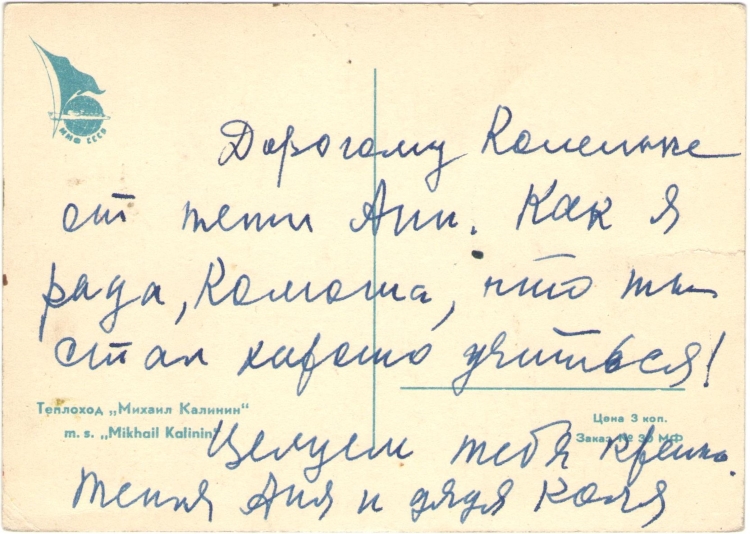 ММФ СССР
Дорогому Коленьке
от тети Ани. Как я
рада, Колюша, что ты
стал хорошо учиться!
Теплоход „Михаил Калинин“
m. s. „Mikhail Kalinin“
Цена 3 коп.
Заказ № 30 МФ
Целуем тебя крепко.
тетя Аня и дядя Коля